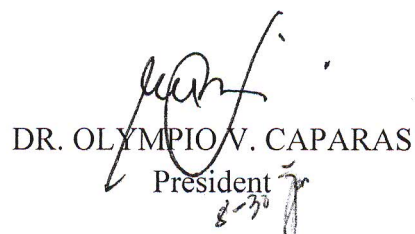 DR. OLYMPIO V. CAPARAS
President
8-30